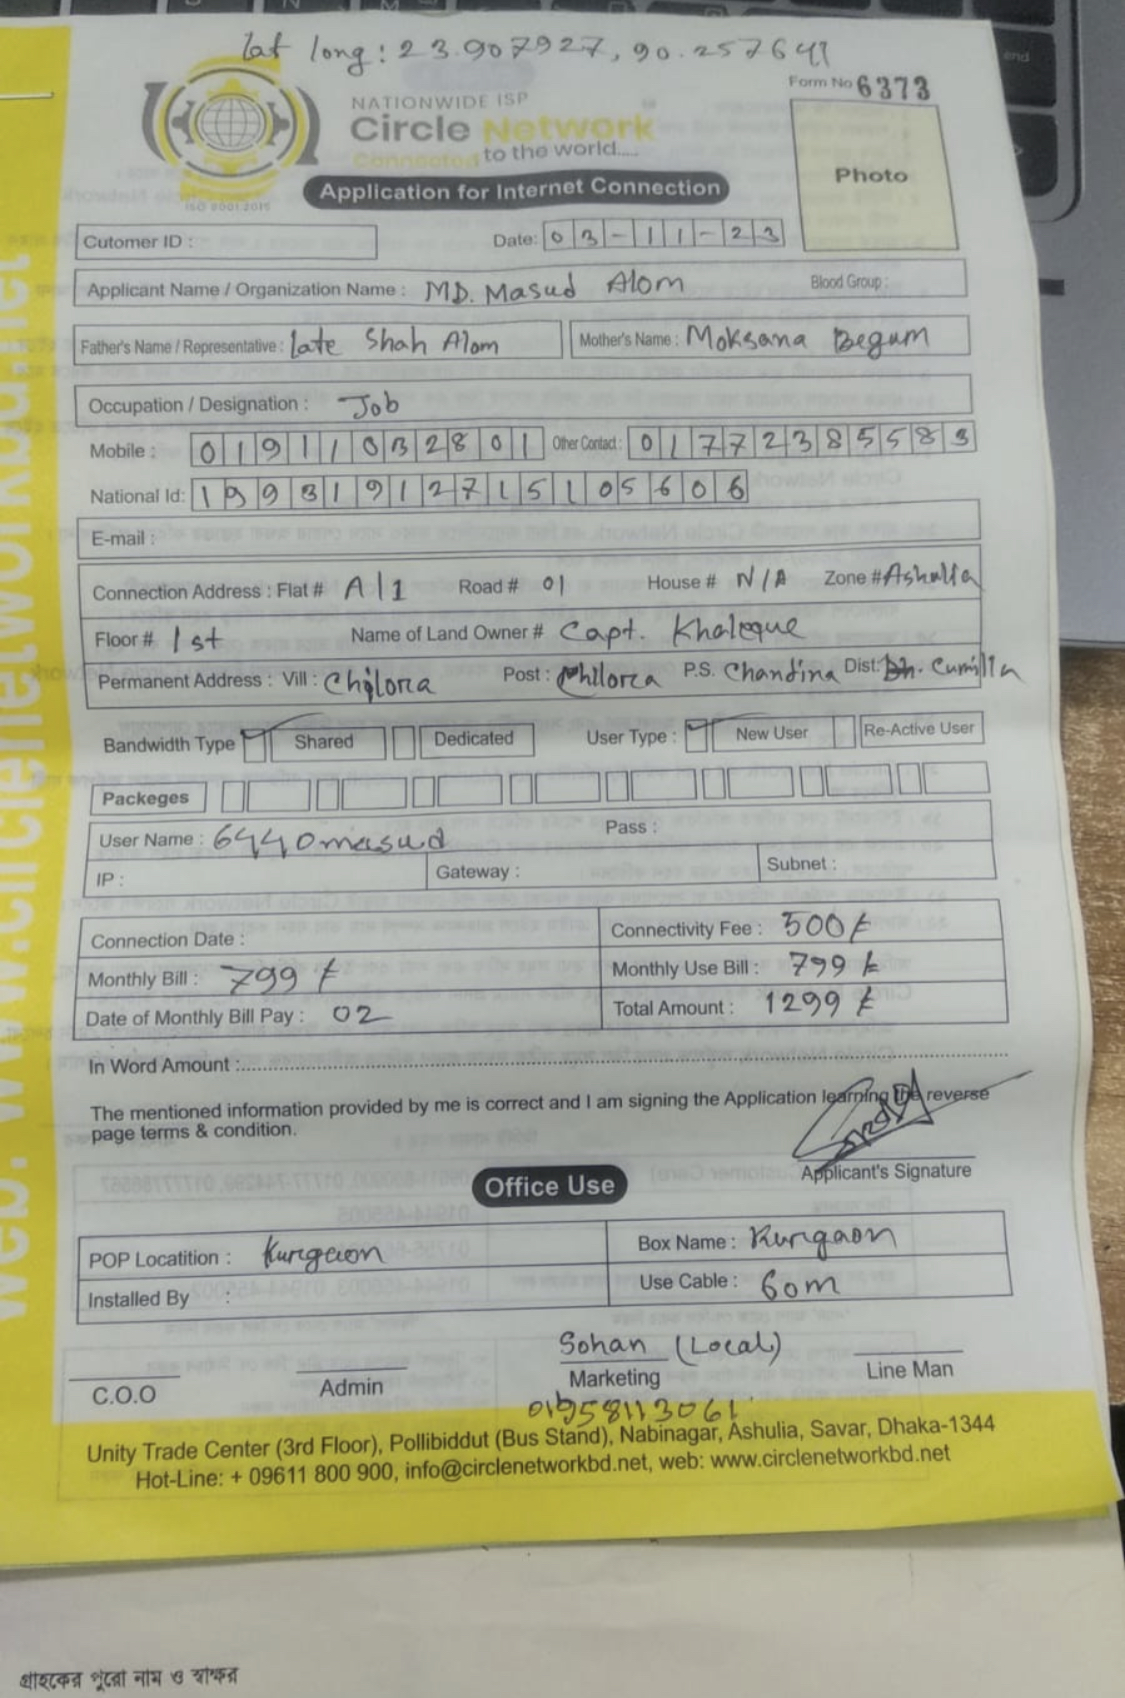 lat long: 23.907927, 90.257641
Form No 6373
NATIONWIDE ISP
Circle Network
Connected to the world....
ISO 9001:2015
Application for Internet Connection
Photo
Cutomer ID :
Date: 03-11-23
Applicant Name / Organization Name : MD. Masud Alom Blood Group :
Father's Name / Representative : Late Shah Alom Mother's Name : Moksana Begum
Occupation / Designation : Job
Mobile : 01911032801 Other Contact : 01772385583
National Id: 19931912715105606
E-mail :
Connection Address : Flat # A/1 Road # 01 House # N/A Zone # Ashulia
Floor # 1st Name of Land Owner # Capt. Khaleque
Permanent Address : Vill : Chilora Post : Chilora P.S. Chandina Dist: Cumilla
Bandwidth Type Shared Dedicated User Type : New User Re-Active User
Packeges
User Name : 6440masud Pass :
IP : Gateway : Subnet :
Connection Date : Connectivity Fee : 500/=
Monthly Bill : 799/= Monthly Use Bill : 799/=
Date of Monthly Bill Pay : 02 Total Amount : 1299/=
In Word Amount :
The mentioned information provided by me is correct and I am signing the Application learning the reverse
page terms & condition.
Applicant's Signature
Office Use
POP Locatition : Kurgaon Box Name : Kurgaon
Installed By : Use Cable : 60m
Sohan (Local)
C.O.O Admin Marketing Line Man
01958113061
Unity Trade Center (3rd Floor), Pollibiddut (Bus Stand), Nabinagar, Ashulia, Savar, Dhaka-1344
Hot-Line: + 09611 800 900, info@circlenetworkbd.net, web: www.circlenetworkbd.net
web: www.circlenetworkbd.net
গ্রাহকের পুরো নাম ও স্বাক্ষর